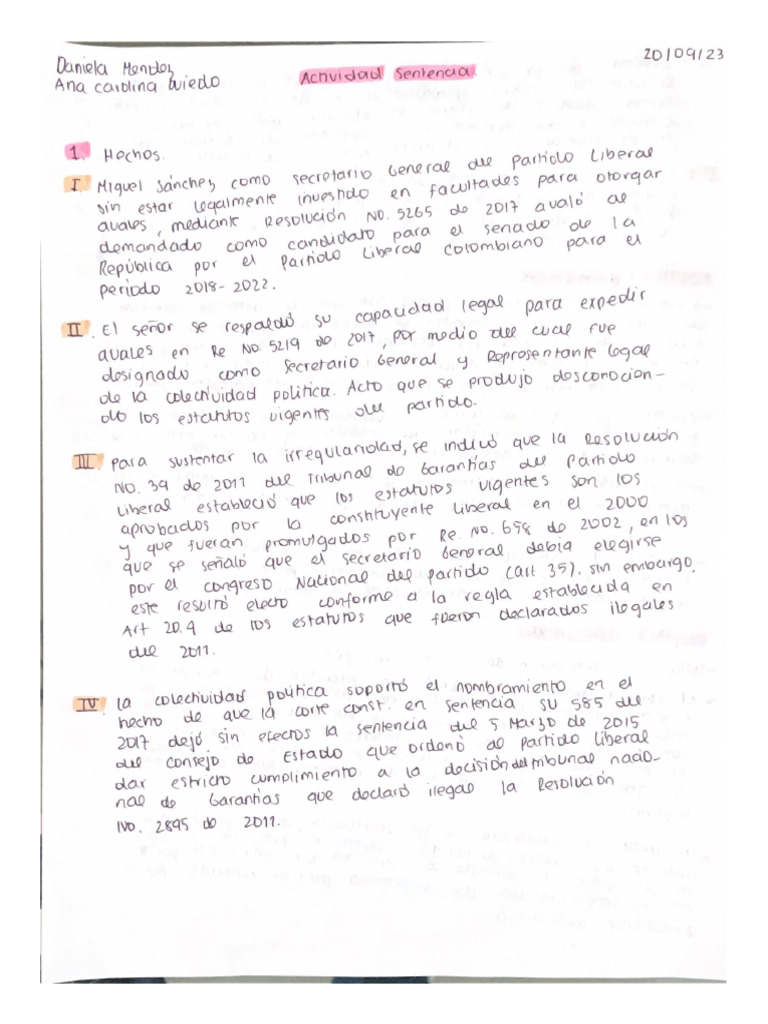 20/09/23
Daniela Mendez
Ana Carolina Oviedo
Actividad Sentencia
1. Hechos.
I Miguel Sánchez como secretario General del Partido Liberal
sin estar legalmente investido en facultades para otorgar
avales, mediante Resolución No. 5265 de 2017 avaló al
demandado como candidato para el senado de la
República por el Partido Liberal Colombiano para el
periodo 2018-2022.
II. El señor se respaldó su capacidad legal para expedir
avales en Re No. 5219 de 2017, por medio del cual fue
designado como Secretario General y Representante legal
de la colectividad política. Acto que se produjo desconocien-
do los estatutos vigentes del partido.
III Para sustentar la irregularidad, se indicó que la Resolución
No. 39 de 2011 del Tribunal de Garantías del Partido
Liberal estableció que los estatutos vigentes son los
aprobados por la constituyente liberal en el 2000
y que fueran promulgados por Re. No. 658 de 2002, en los
que se señaló que el secretario General debía elegirse
por el congreso Nacional del partido (art 35). sin embargo,
este resultó electo conforme a la regla establecida en
Art 20.4 de los estatutos que fueron declarados ilegales
del 2011.
IV La colectividad política soportó el nombramiento en el
hecho de que la corte const. en sentencia SU 585 del
2017 dejó sin efectos la sentencia del 5 Marzo de 2015
del Consejo de Estado que ordenó al Partido Liberal
dar estricto cumplimiento a la decisión del tribunal nacio-
nal de Garantías que declaró ilegal la Resolución
No. 2895 de 2011.